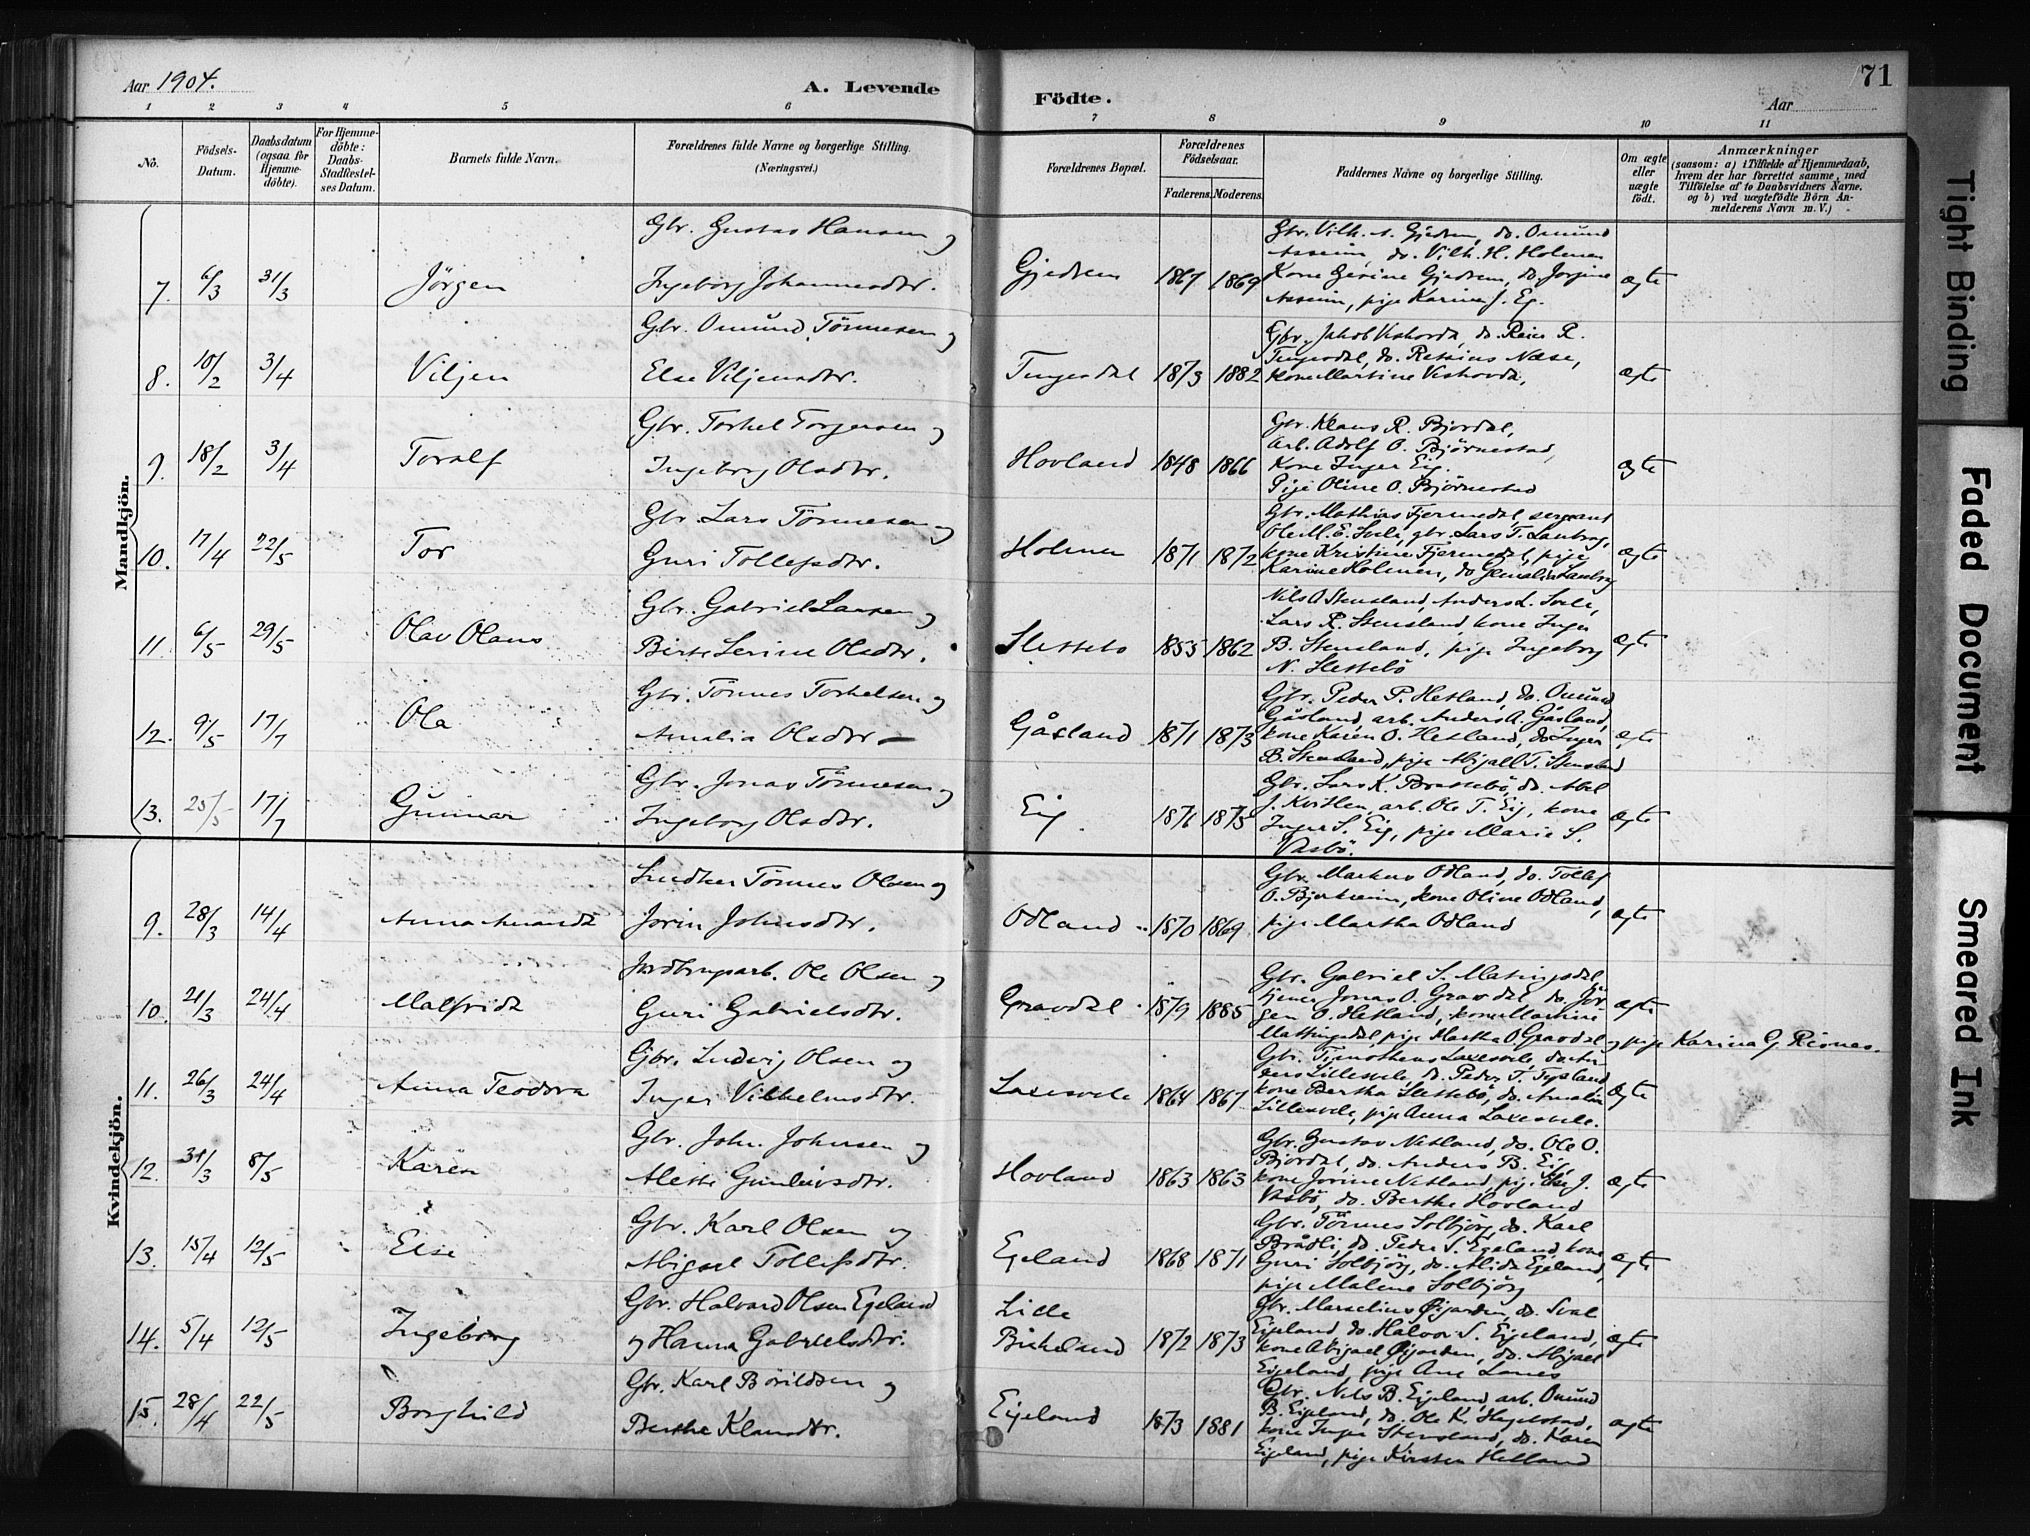 Aar 1904.
A. Levende
Födte.
71
Aar
1 2 3 4 5 6 7 8 9 10 11
No.
Födsels-Datum.
Daabsdatum (ogsaa for Hjemmedöbte).
For Hjemmedöbte: Daabs-Stadfestelses Datum.
Barnets fulde Navn.
Forældrenes fulde Navne og borgerlige Stilling. (Næringsvei.)
Forældrenes Bopæl.
Forældrenes Födselsaar.
Faderens. Moderens.
Faddernes Navne og borgerlige Stilling.
Om ægte eller uægte födt.
Anmærkninger
(saasom: a) i Tilfælde af Hjemmedaab, hvem der har forrettet samme, med Tilföielse af to Daabsvidners Navne, og b) ved uægtefödte Börn Anmelderens Navn m. V.)
Mandkjön.
7. 6/3 31/3 Jörgen
Gbr. Gustav Hansen og
Ingeborg Johannesdtr.
Gjedrem 1867 1869
Gbr. Vilh. A. Gjedrem, do. Omund
Asseim, do. Vilh. H. Holmen
Kone Gerine Gjedrem, do. Jorgine
Asseim, pige Karine J. Eg.
ægte
8. 10/2 3/4 Viljen
Gbr. Omund Tönnesen og
Else Viljensdtr.
Tengesdal 1873 1882
Gbr. Jakob Veshovda, do. Reier R.
Tengesdal, do. Retsius Næse,
kone Martine Veshovda,
ægte
9. 18/2 3/4 Toralf
Gbr. Torkel Torgersen og
Ingeborg Olsdtr.
Hovland 1848 1866
Gbr. Klaus R. Bjordal,
Arb. Adolf O. Björnestad,
Kone Inger Eig.
Pige Oline O. Björnestad
ægte
10. 17/4 22/5 Tor
Gbr. Lars Tönnesen og
Guri Tollefsdtr.
Holmen 1871 1872
Gbr. Mathias Fjermedal, sergeant
Ole M. E. Svele, gbr. Lars T.
kone Kristine Fjermedal, pige
Karine Holmen, do
ægte
11. 6/5 29/5 Olav Olaus
Gbr. Gabriel Larsen og
Berte Serine Olsdtr.
Slettebö 1853 1862
Nils O Stensland, Anders L. Svele,
Lars R. Stensland, kone Inger
B. Stensland, pige Ingeborg
N. Slettebö
ægte
12. 9/5 17/7 Ola
Gbr. Tönnes Torkelsen og
Amalia Olsdtr.
Gåsland 1871 1873
Gbr. Peder P. Hetland, do. Omund
Gåsland, arb. Anders A. Gåsland,
kone Karen O. Hetland, do Inger
B. Stensland, pige Abigall T. Stensland
ægte
13. 25/5 17/7 Gunnar
Gbr. Jonas Tönnesen og
Ingeborg Olsdtr.
Eig 1876 1875
Gbr. Lars K. Brattebö, do. Abel
J. Kvitlen, arb. Ole T. Eig, kone
Inger S. Eig, pige Marie S.
Vasbö.
ægte
Kvindekjön.
9. 28/3 14/4 Anna Amanda
Snedker Tönnes Olsen og
Jorin Johnsdtr.
Odland 1870 1869
Gbr. Markus Odland, do. Tollef
O. Bjerkreim, kone Oline Odland,
pige Martha Odland
ægte
10. 21/3 24/4 Malfrida
Jordbrugsarb. Ole Olsen og
Guri Gabrielsdtr.
Gravdal 1879 1885
Gbr. Gabriel S. Matingsdal
tjener Jonas O. Gravdal, do. Jör
gen O. Hetland, kone Martine
Mattingsdal, pige Martha O Gravdal og pige Karina G. Risnes.
ægte
11. 26/3 24/4 Anna Teodora
Gbr. Ludvig Olsen og
Inger Vilhelmsdtr.
Laxesvele 1864 1867
Gbr. Timotheus Laxesvele, do An
ders Lillesvele, do. Peder T. Tysland
kone Bertha Slettebö, do. Amalia
Lillesvele, pige Anna Laxesvele.
ægte
12. 31/3 8/5 Karen
Gbr. John Johnsen og
Alette Gunleivsdtr.
Hovland 1863 1863
Gbr. Gustav Netland, do. Ole O.
Bjordal, do. Anders B. Eig,
kone Jorine Netland, pige Else J.
Vasbö, do. Berthe Hovland
ægte
13. 15/4 12/5 Else
Gbr. Karl Olsen og
Abigael Tollefsdtr.
Egeland 1868 1871
Gbr. Tönnes Solbjörg, do. Karl
Brådli, do. Peder S. Egeland, kone
Guri Solbjörg, do. Alida Egeland,
pige Malene Solbjörg
ægte
14. 5/4 12/5 Ingeborg
Gbr. Halvard Olsen Egeland
og Hanna Gabrielsdtr.
Lille
Birkeland 1872 1873
Gbr. Marselius Öigarden, do. Sval
Eigeland, do. Halvor S. Eigeland,
kone Abigael Öigarden, do. Abigael
Eigeland, pige Ane Lones
ægte
15. 28/4 22/5 Borghild
Gbr. Karl Börildsen og
Berthe Klausdtr.
Eigeland 1873 1881
Gbr. Nils B. Eigeland, arb. Omund
B. Eigeland, do. Ole K. Hegelstad,
kone Inger Stensland, do. Karen
Eigeland, pige Kirsten Hetland
ægte
Tight Binding
Faded Document
Smeared Ink